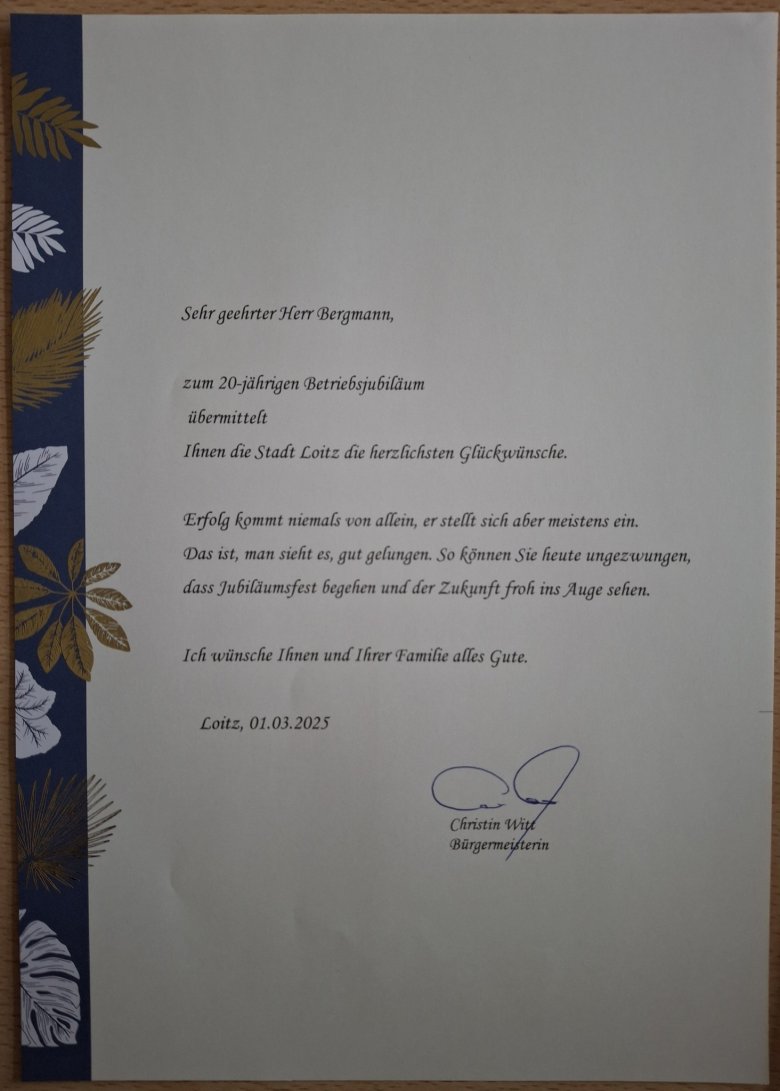 Sehr geehrter Herr Bergmann,
zum 20-jährigen Betriebsjubiläum
übermittelt
Ihnen die Stadt Loitz die herzlichsten Glückwünsche.
Erfolg kommt niemals von allein, er stellt sich aber meistens ein.
Das ist, man sieht es, gut gelungen. So können Sie heute ungezwungen,
dass Jubiläumsfest begehen und der Zukunft froh ins Auge sehen.
Ich wünsche Ihnen und Ihrer Familie alles Gute.
Loitz, 01.03.2025
Christin Witt
Bürgermeisterin